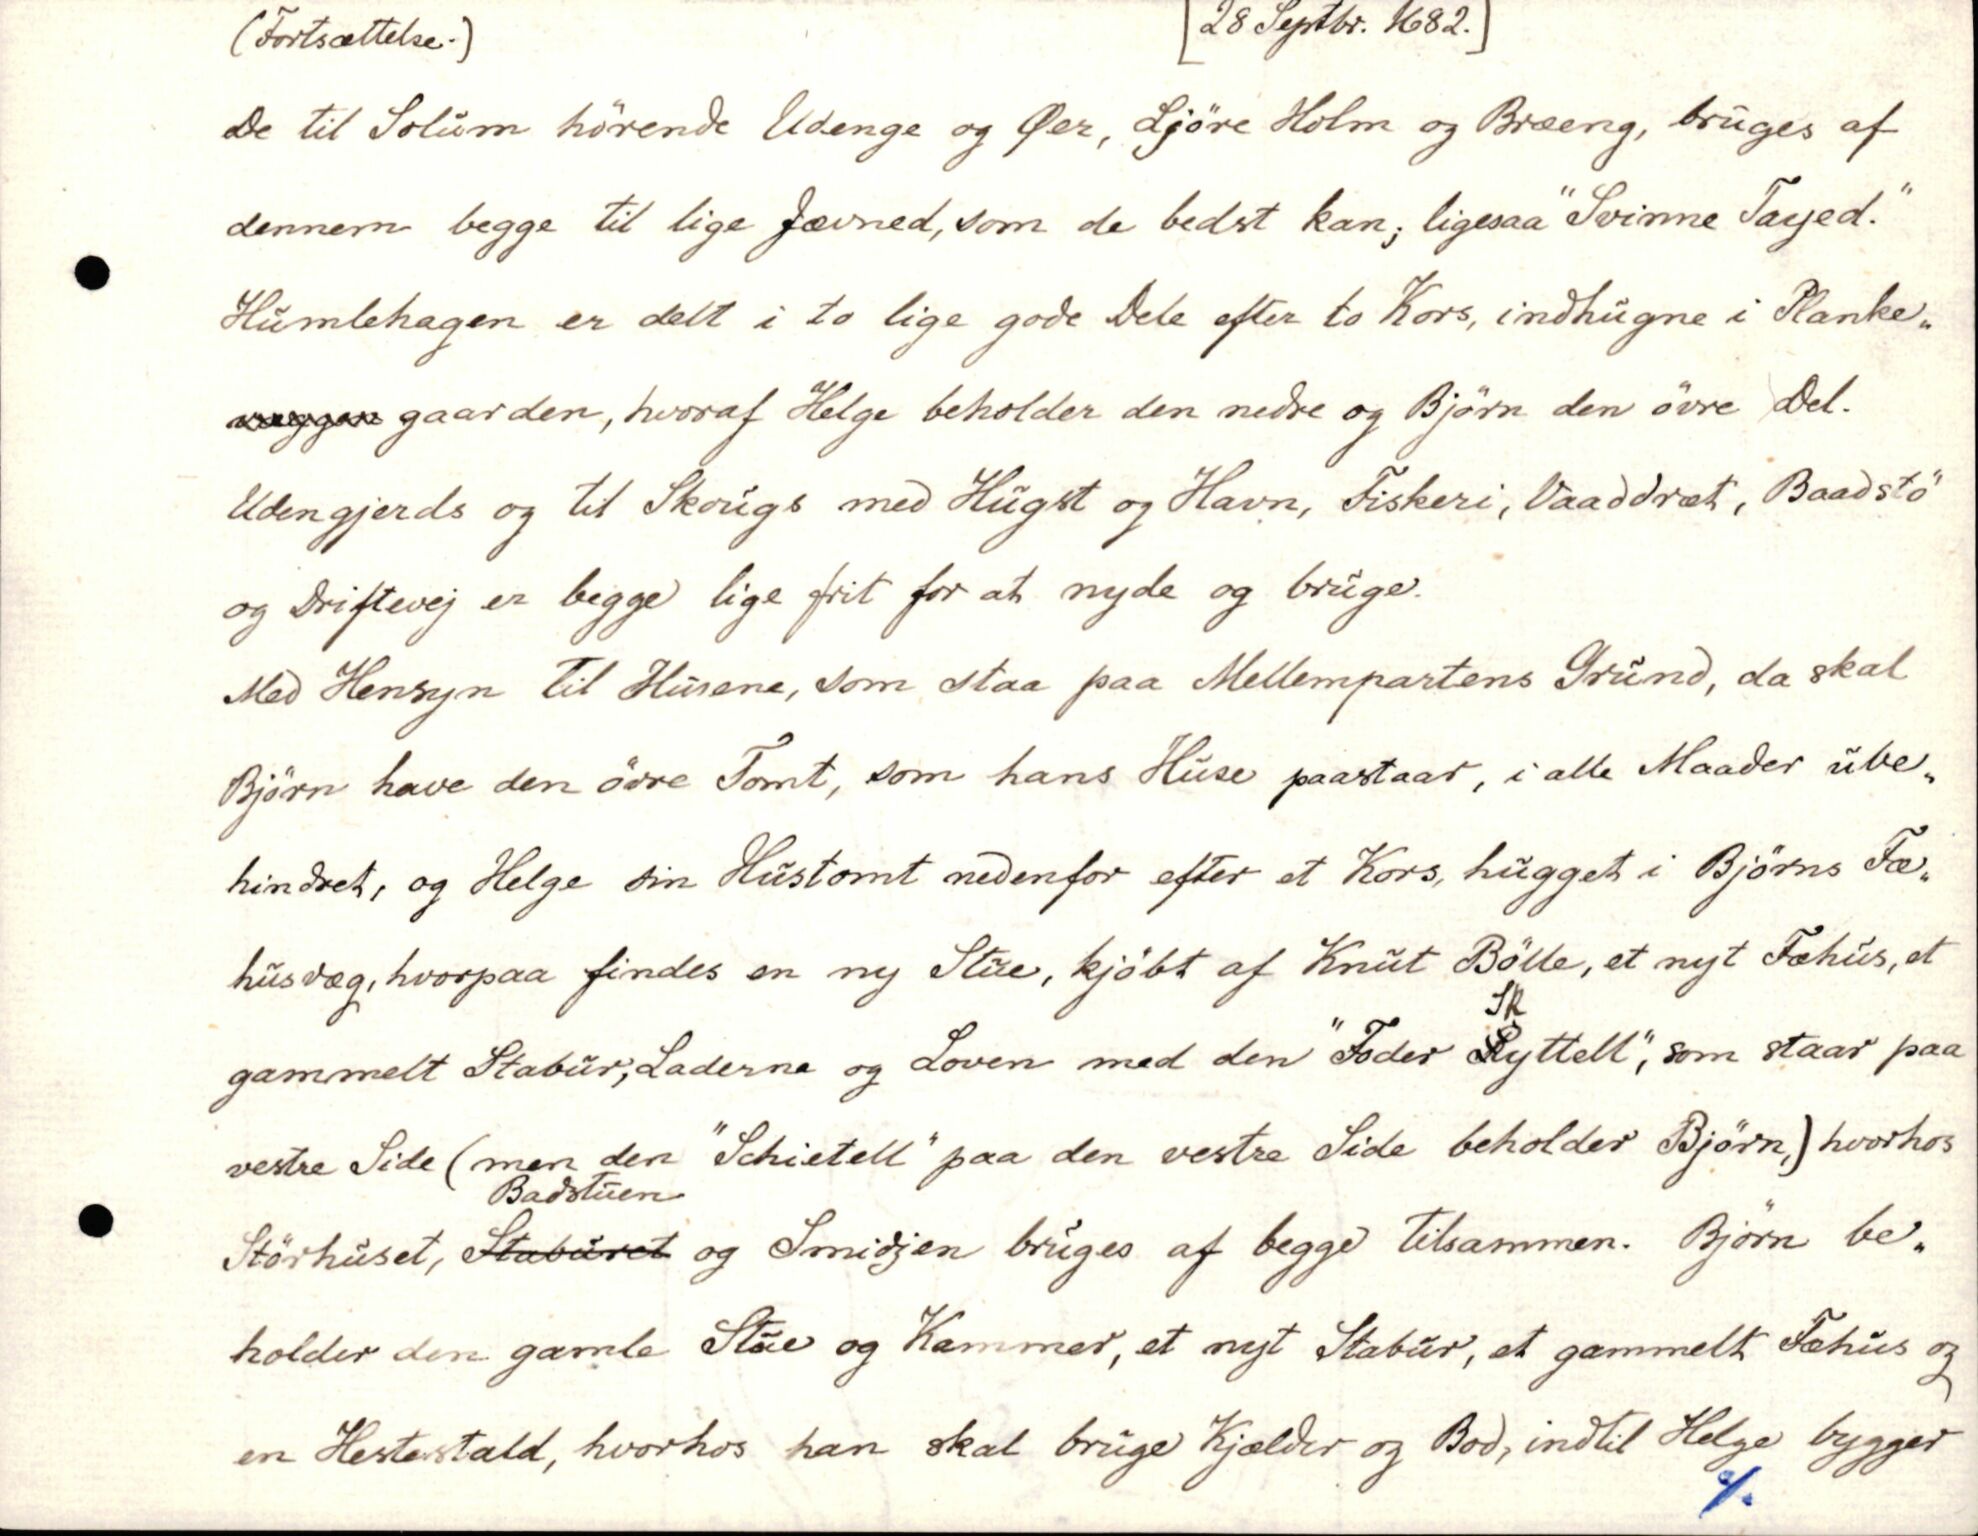 (Fortsættelse.) [28 Septbr. 1682.]
De til Solum hörende Udenge og Øer, Ljöre Holm og Bræeng, bruges af
dennem begge til lige Jævned, som de bedst kan; ligesaa "Svinne Tayed."
Humlehagen er delt i to lige gode Dele efter to Kors, indhugne i Planke„
gaarden, hvoraf Helge beholder den nedre og Björn den övre Del.
Udengjerds og til Skougs med Hugst og Havn, Fiskeri, Vaaddræt, Baadstö
og Driftevej er begge lige frit for at nyde og bruge.
Med Hensyn til Husene, som staa paa Mellempartens Grund, da skal
Björn have den övre Tomt, som hans Huse paastaar, i alle Maader ube„
hindret, og Helge sin Hustomt nedenfor efter et Kors, hugget i Björns Fæ„
husvæg, hvorpaa findes en ny Stue, kjöbt af Knut Bölle, et nyt Fæhus, et
gammelt Stabur, Laderne og Loven med den "Foder Skyttell", som staar paa
vestre Side (men den "Schietell" paa den vestre Side beholder Björn,) hvorhos
Störhuset, Staburet Badstuen og Smidjen bruges af begge tilsammen. Björn be„
holder den gamle Stue og Kammer, et nyt Stabur, et gammelt Fæhus og
en Hestestald, hvorhos han skal bruge Kjælder og Bod, indtil Helge bygger
./.